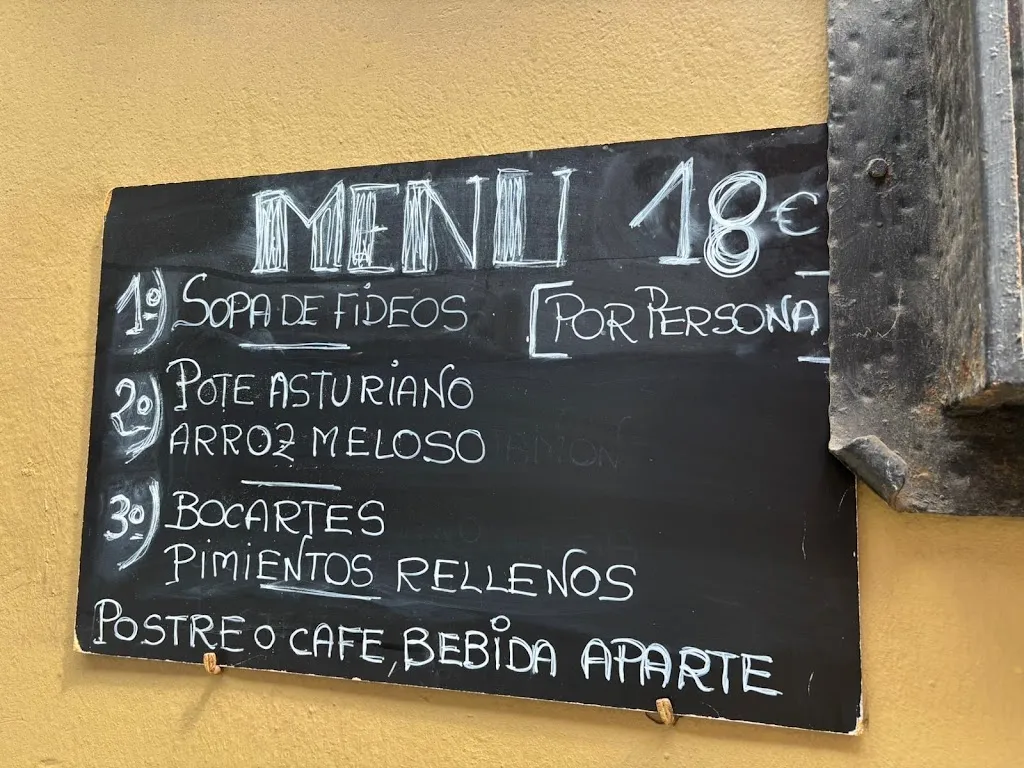 MENU 18€
1º) SOPA DE FIDEOS [POR PERSONA
2º) POTE ASTURIANO
ARROZ MELOSO
3º) BOCARTES
PIMIENTOS RELLENOS
POSTRE O CAFE, BEBIDA APARTE